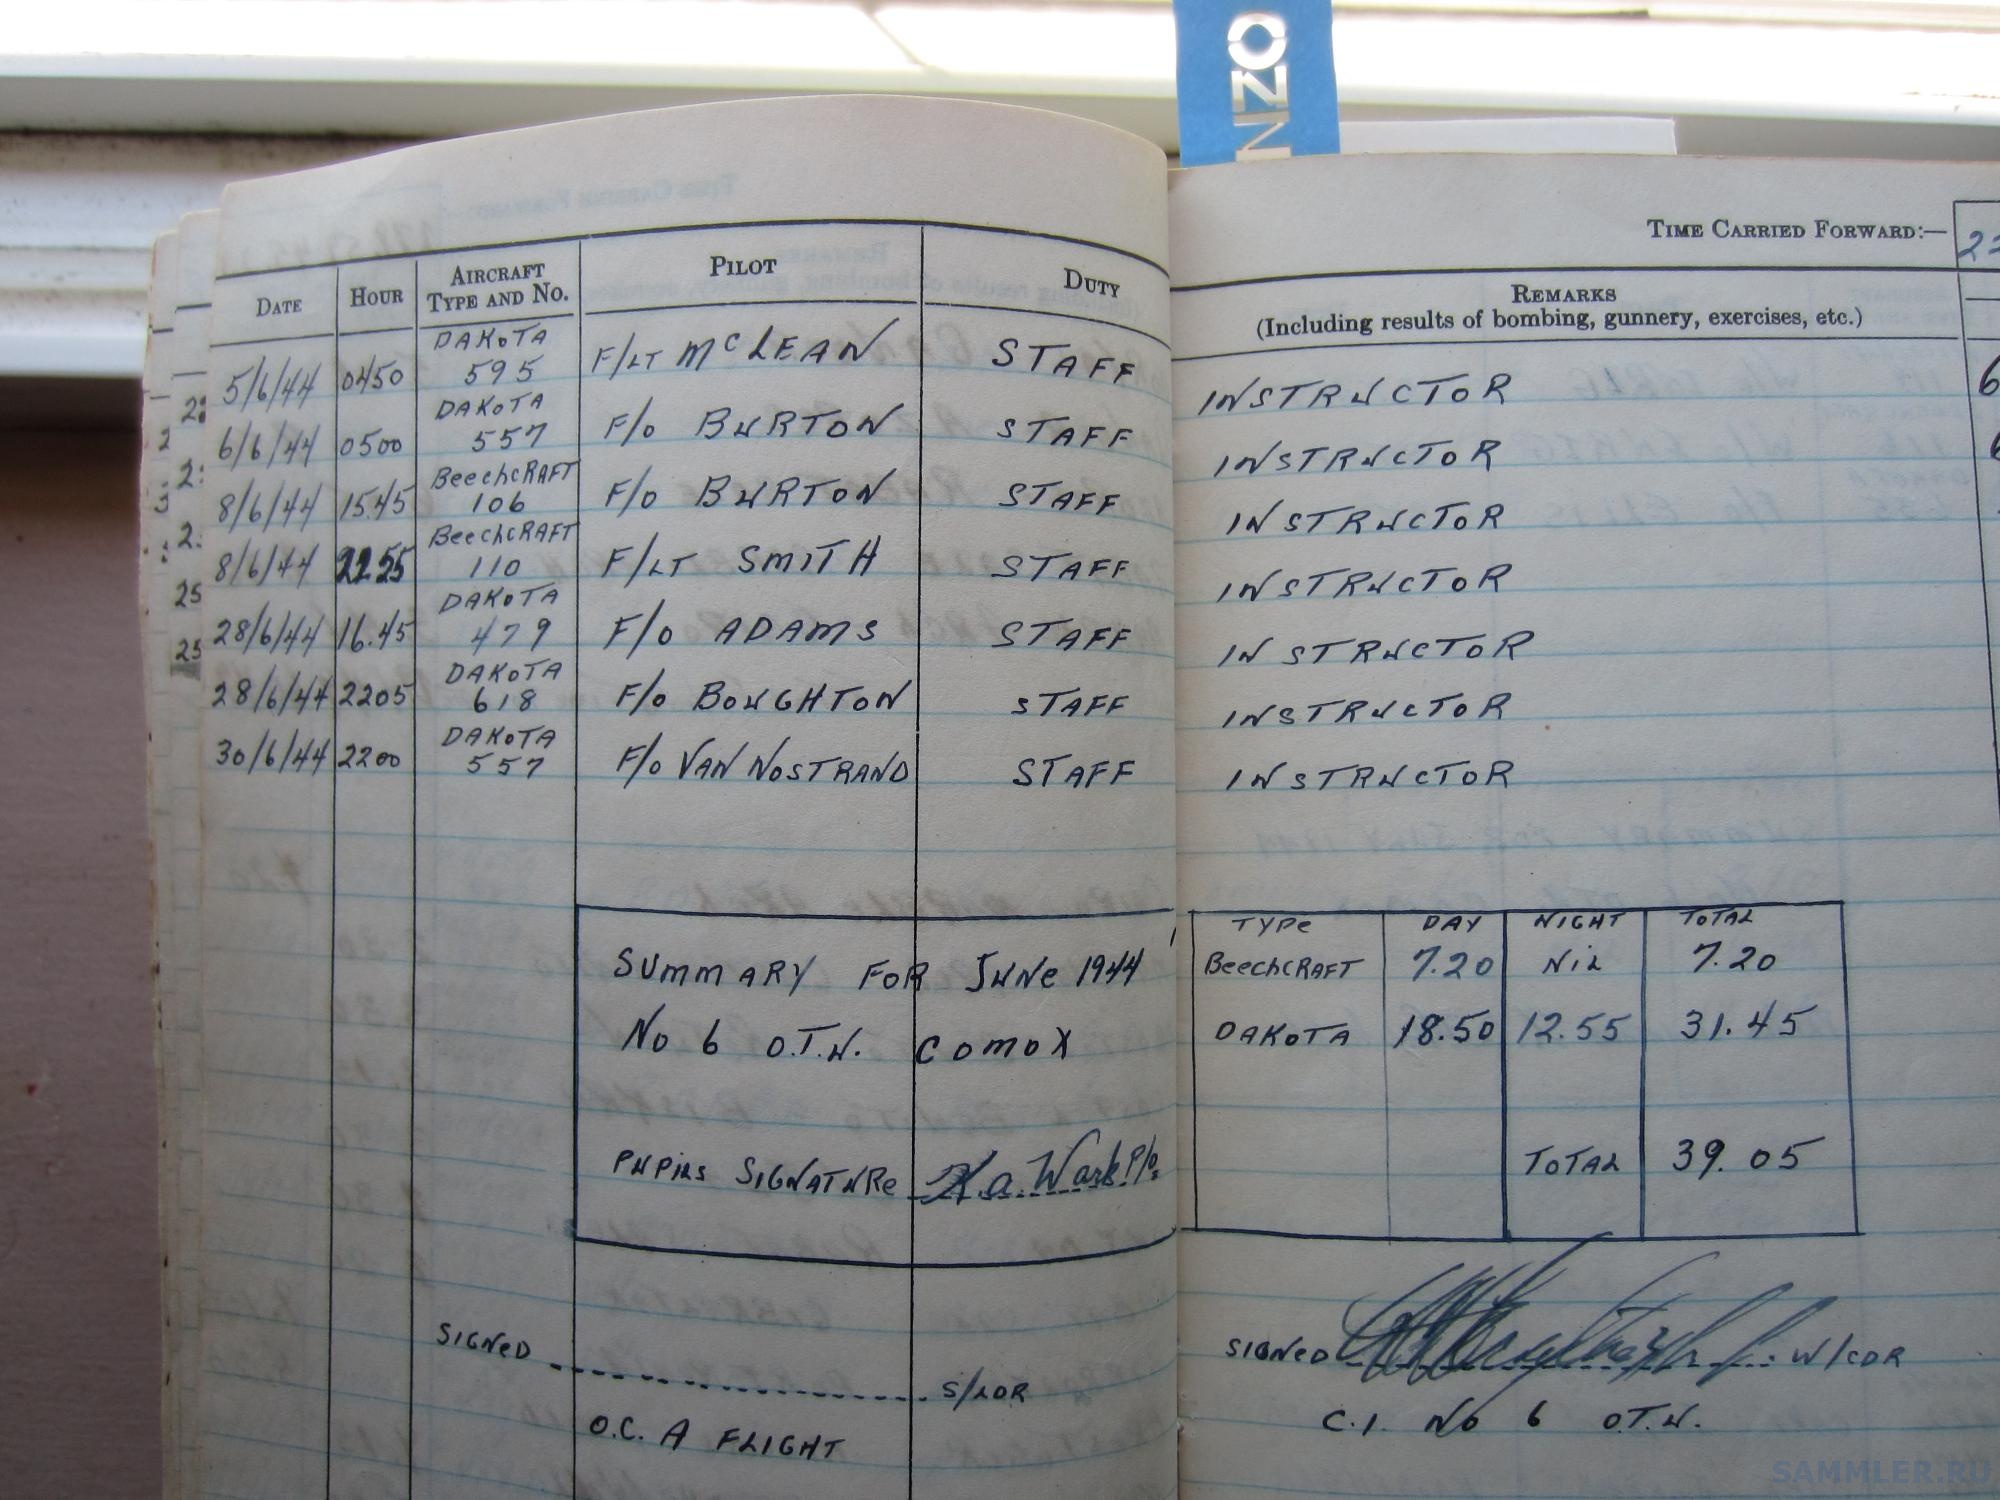 NZO
TIME CARRIED FORWARD:—
DATE HOUR AIRCRAFT TYPE AND No. PILOT DUTY REMARKS
(Including results of bombing, gunnery, exercises, etc.)
5/6/44 0450 DAKOTA 595 F/LT McLEAN STAFF INSTRUCTOR
6/6/44 0500 DAKOTA 557 F/O BURTON STAFF INSTRUCTOR
8/6/44 15.45 BeechCRAFT 106 F/O BURTON STAFF INSTRUCTOR
8/6/44 22.55 BeechCRAFT 110 F/LT SMITH STAFF INSTRUCTOR
28/6/44 16.45 DAKOTA 479 F/O ADAMS STAFF INSTRUCTOR
28/6/44 2205 DAKOTA 618 F/O BOUGHTON STAFF INSTRUCTOR
30/6/44 2200 DAKOTA 557 F/O VAN NOSTRAND STAFF INSTRUCTOR
SUMMARY FOR JUNe 1944
No 6 O.T.U. COMOX
PUPILS SIGNATURe K.A. Wark P/O
TYPe DAY NIGHT TOTAL
BeechCRAFT 7.20 NiL 7.20
DAKOTA 18.50 12.55 31.45
TOTAL 39.05
SIGNeD S/LDR
O.C. A FLIGHT
SIGNeD W/CDR
C.I. No 6 O.T.U.
SAMMLER.RU